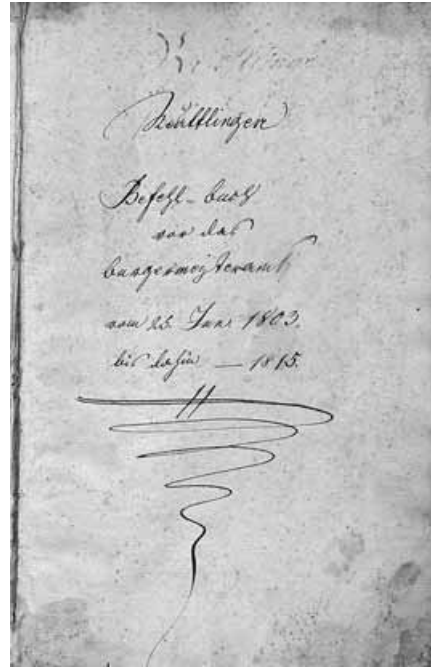 Befehl-buch
vor das
burgermeisteramt
vom 25. Juni 1803.
bis dahin — 1815.